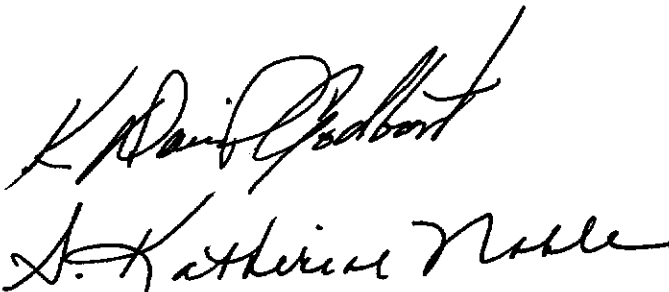 K. David Godbout
S. Katherine Noble